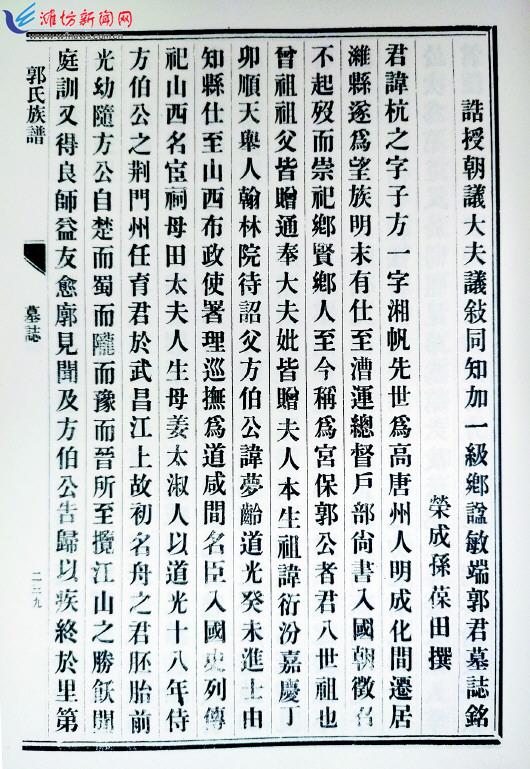 潍坊新闻网
www.wfnews.com.cn
誥授朝議大夫議敍同知加一級鄉諡敏端郭君墓誌銘
榮成孫葆田撰
君諱杭之字子方一字湘帆先世爲高唐州人明成化間遷居
濰縣遂爲望族明末有仕至漕運總督戶部尙書入國朝徵名
不起歿而崇祀鄉賢鄉人至今稱爲宮保郭公者君八世祖也
曾祖祖父皆贈通奉大夫妣皆贈夫人本生祖諱衍汾嘉慶丁
卯順天舉人翰林院待詔父方伯公諱夢齡道光癸未進士由
知縣仕至山西布政使署理巡撫爲道咸間名臣入國史列傳
祀山西名宦祠母田太夫人生母姜太淑人以道光十八年侍
方伯公之荆門州任育君於武昌江上故初名舟之君胚胎前
光幼隨方公自楚而蜀而隴而豫而晉所至攬江山之勝飫聞
庭訓又得良師益友愈廓見聞及方伯公告歸以疾終於里第
郭氏族譜
墓誌
二二九